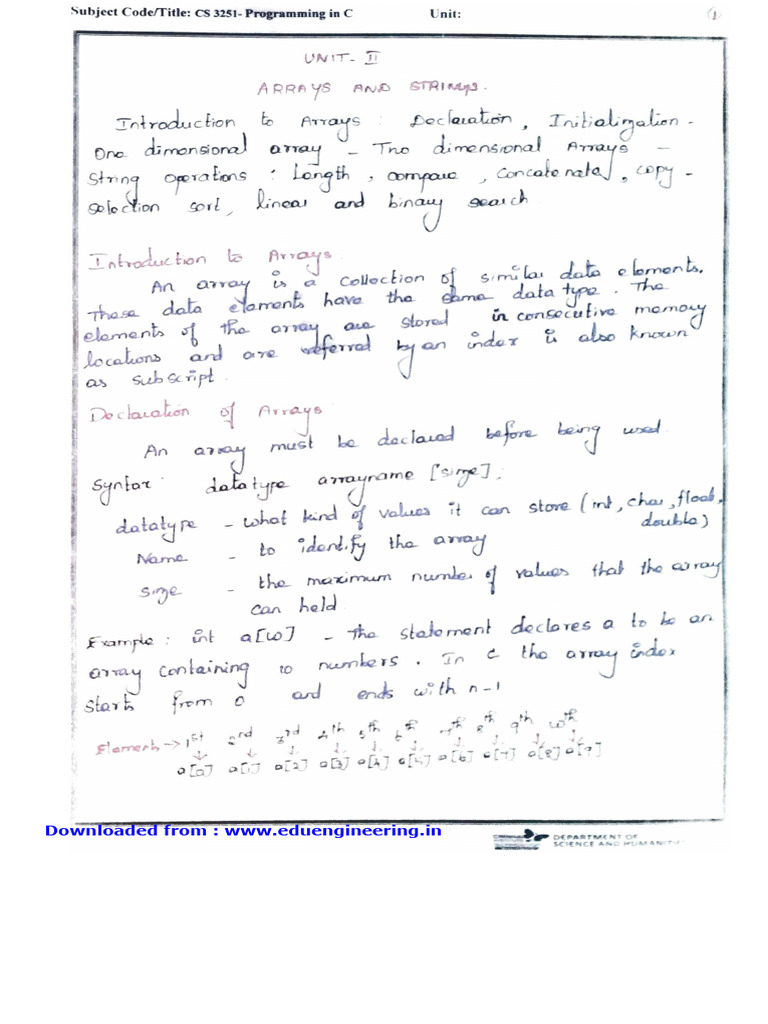 Subject Code/Title: CS 3251- Programming in C Unit: 1
UNIT- II
ARRAYS AND STRINGS.
Introduction to Arrays : Declaration, Initialization -
One dimensional array - Two dimensional Arrays -
String operations : Length, compare, concatenate, copy -
selection sort, linear and binary search
Introduction to Arrays
An array is a collection of similar data elements.
These data elements have the same data type. The
elements of the array are stored in consecutive memory
locations and are referred by an index is also known
as subscript.
Declaration of Arrays
An array must be declared before being used.
Syntax: datatype arrayname [size];
datatype - what kind of values it can store (int, char, float,
double)
Name - to identify the array
size - the maximum number of values that the array
can held
Example: int a[10] - the statement declares a to be an
array containing 10 numbers. In C the array index
starts from 0 and ends with n-1
Elements -> 1st 2nd 3rd 4th 5th 6th 7th 8th 9th 10th
a[0] a[1] a[2] a[3] a[4] a[5] a[6] a[7] a[8] a[9]
Downloaded from : www.eduengineering.in
DEPARTMENT OF
SCIENCE AND HUMANITIES